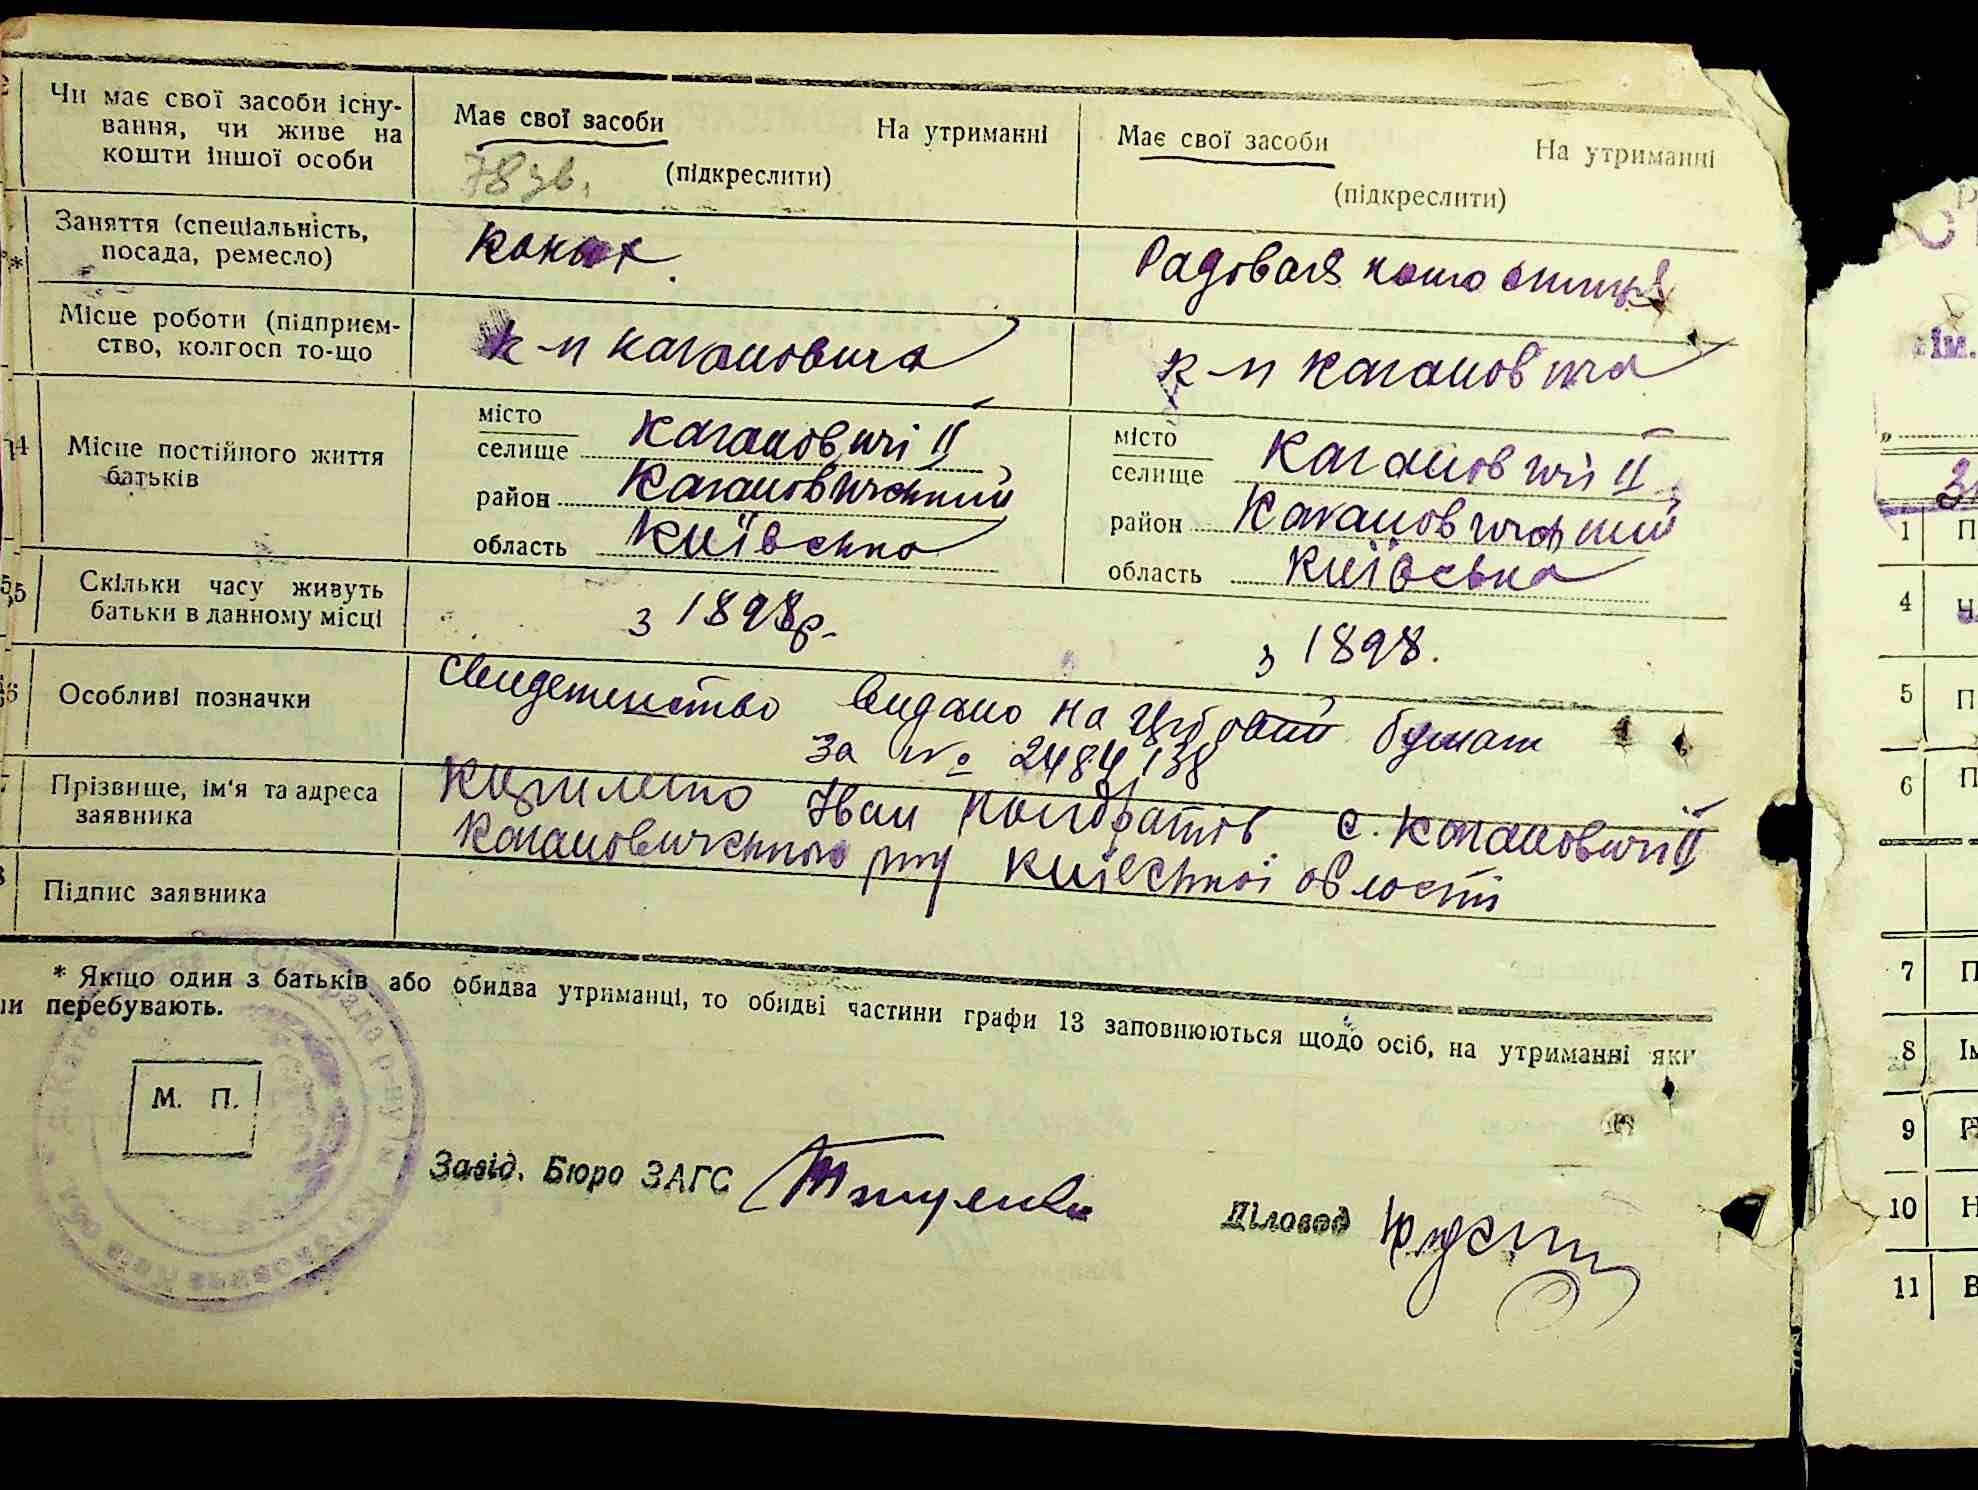 Чи має свої засоби існу-
вання, чи живе на
кошти іншої особи
Має свої засоби На утриманні
78 зв. (підкреслити)
Має свої засоби На утриманні
(підкреслити)
Заняття (спеціальність,
посада, ремесло)
Конюх.
Радовая
Місце роботи (підприєм-
ство, колгосп то-що
к-п Кагановича
к-п Кагановича
14 Місце постійного життя
батьків
місто
селище Кагановичі II
район Кагановичський
область Київська
місто
селище Кагановичі II
район Кагановичський
область Київська
Скільки часу живуть
батьки в данному місці
з 1898р.
з 1898.
Особливі позначки
свидетенство видано на бумат
за № 2484138
Прізвище, ім'я та адреса
заявника
Іван с. Кагановичі II
Кагановичського р-ну Київської області
Підпис заявника
* Якщо один з батьків або обидва утриманці, то обидві частини графи 13 заповнюються щодо осіб, на утриманні яки
перебувають.
М. П.
Завід. Бюро ЗАГС
Діловод
ім.
1 П
4
5 П
6 П
7 П
8 Ім
9
10 Н
11 В